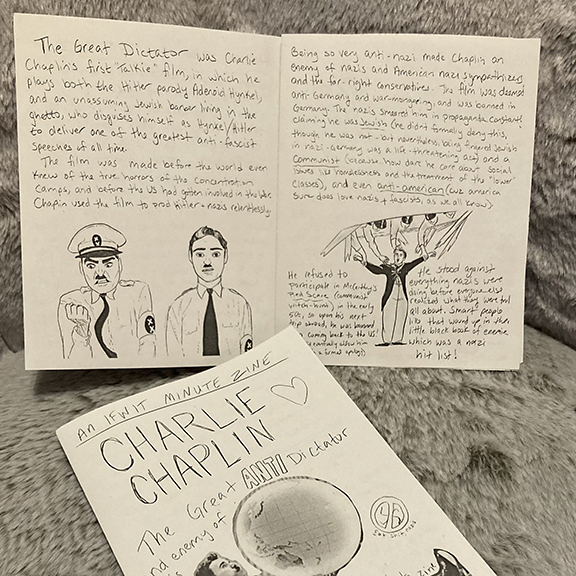 The Great Dictator was Charlie
Chaplin's first "Talkie" film, in which he
plays both the Hitler parody Adenoid Hynkel,
and an unassuming Jewish barber living in the
ghetto, who disguises himself as Hynkel/Hitler
to deliver one of the greatest anti-fascist
speeches of all time.
The film was made before the world even
knew of the true horrors of the concentration
camps, and before the US had gotten involved in the war.
Chaplin used the film to prod Hitler + nazis relentlessly.
Being so very anti-nazi made Chaplin an
enemy of nazis and American nazi sympathizers
and the far-right conservatives. The film was deemed
anti Germany and war-mongering, and was banned in
Germany. The nazis smeared him in propaganda constantly
claiming he was Jewish (he didn't formally deny this,
though he was not - but nevertheless, being figured Jewish
in nazi Germany was a life-threatening act) and a
Communist (because how dare he care about social
issues like homelessness and the treatment of the "lower
classes), and even anti-american (we america
sure does love nazis + fascists, as we all know)
He refused to
participate in McCarthy's
Red Scare (communist
witch-hunt) in the early
50s, so upon his next
trip abroad, he was banned
coming back to the US
eventually allow him
a formal apology)
He stood against
everything nazis were
doing before everyone else
realized what they were
all about. Smart people
like that wound up in the
little black book of enemies
which was a nazi
hit list!
AN IFWIT MINUTE ZINE
CHARLIE
CHAPLIN
The Great ANTI Dictator
and enemy of
zine